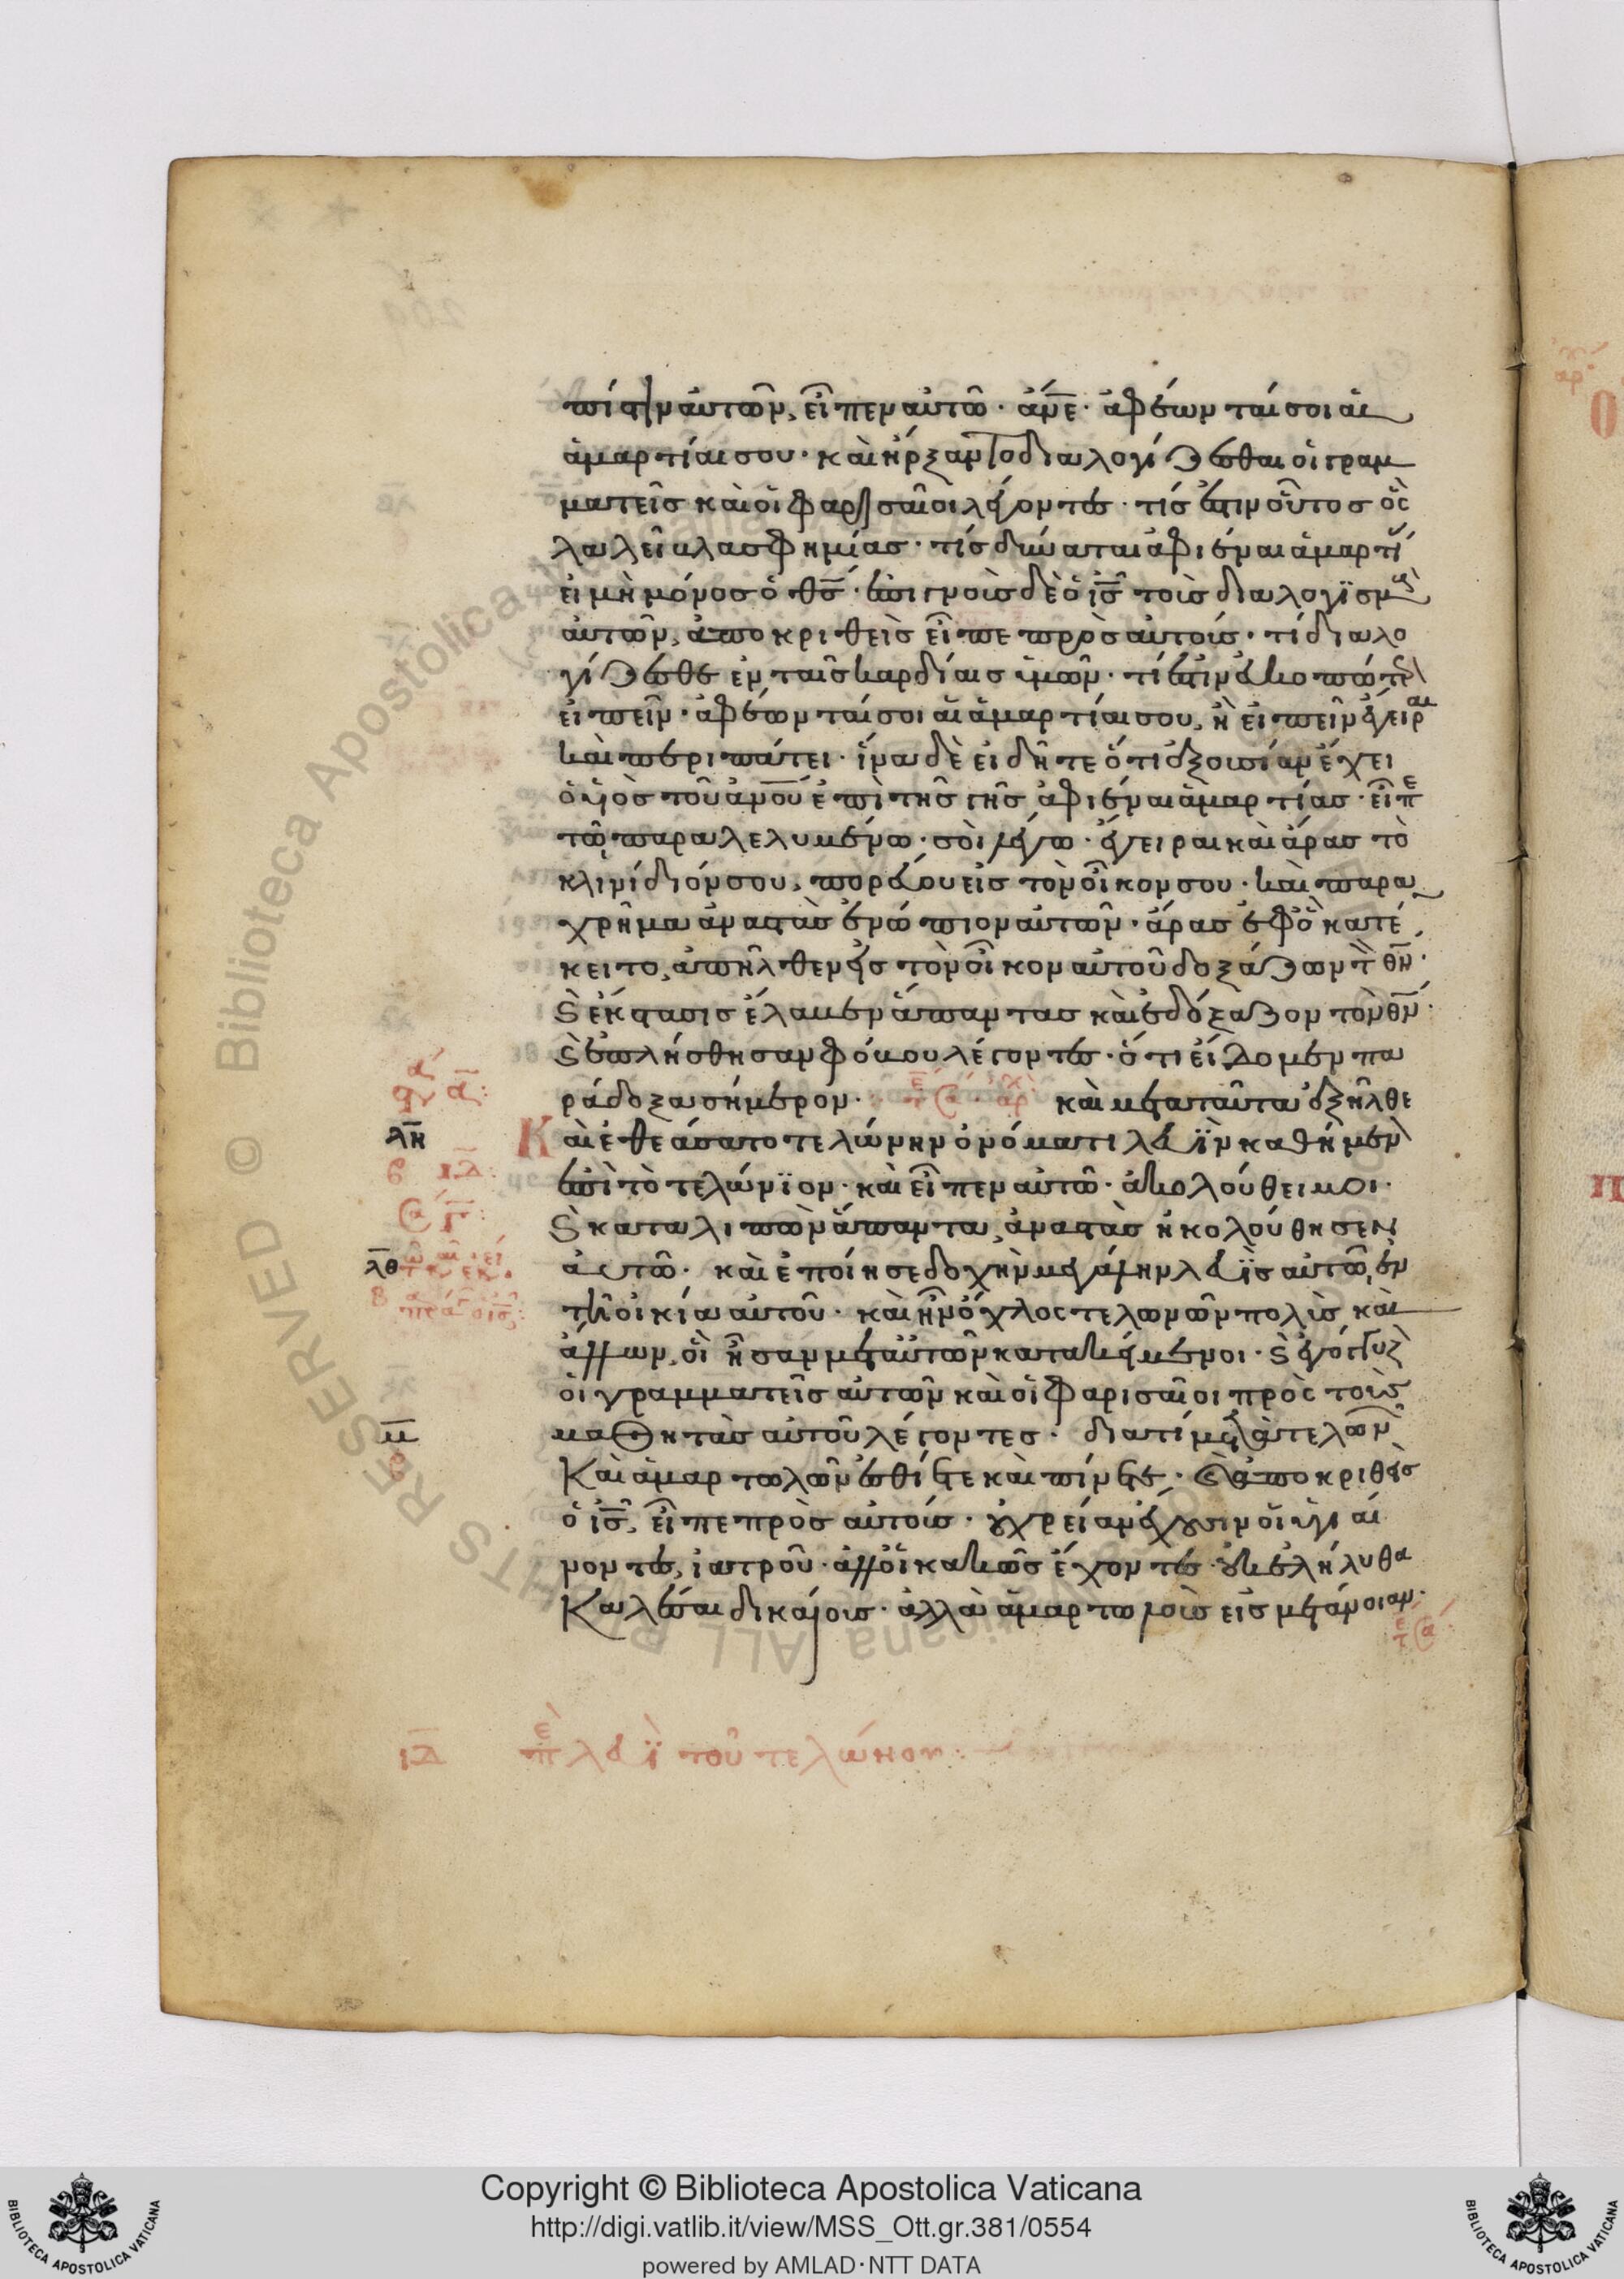 πίστιν αὐτῶν, εἶπεν αὐτῶ· ἄνε· ἀφέωνταί σοι αἱ
ἁμαρτίαι σου· καὶ ἤρξαντο διαλογίζεσθαι οἱ γραμ
ματεῖς καὶ οἱ φαρισαῖοι λέγοντες· τίς ἐστιν οὗτος ὃς
λαλεῖ βλασφημίας· τίς δύναται ἀφιέναι ἁμαρτί
εἰ μὴ μόνος ὁ θς· ἐπιγνοὺς δὲ ὁ ις τοὺς διαλογϊσμοὺς
αὐτῶν, ἀποκριθεὶς εἶπε πρὸς αὐτούς· τί διαλο
γίζεσθε ἐν ταῖς καρδίαις ὑμῶν· τί ἐστιν εὐκοπώτε
εἰπεῖν· ἀφέωνταί σοι αἱ ἁμαρτίαι σου, ἢ εἰπεῖν ἔγειραι
καὶ περιπάτει· ἵνα δὲ εἰδῆτε ὅτι ἐξουσίαν ἔχει
ὁ υἱὸς τοῦ ἀνου ἐπὶ τῆς γῆς ἀφιέναι ἁμαρτίας· εἶπε
τῶ παραλελυμένω· σοὶ λέγω· ἔγειραι καὶ ἄρας τὸ
κλινίδιόν σου, πορεύου εἰς τὸν οἶκον σου· καὶ παρα
χρῆμα ἀναστὰς ἐνώπιον αὐτῶν· ἄρας ἐφ' ὃ κατέ
κειτο, ἀπῆλθεν εἰς τὸν οἶκον αὐτοῦ δοξάζων τὸ θν·
Ϛ ἔκστασις ἔλαβεν ἅπαντας καὶ ἐδόξαζον τὸν θν·
Ϛ ἐπλήσθησαν φόβου λέγοντες· ὅτι εἴδομεν πα
ράδοξα σήμερον· καὶ μετὰ ταῦτα ἐξῆλθε
Καὶ ἐθεάσατο τελώνην ὀνόματι λευῒν καθήμεν
ἐπὶ τὸ τελώνϊον· καὶ εἶπεν αὐτῶ· ἀκολούθει μοι·
Ϛ καταλιπὼν ἅπαντα, ἀναστὰς ἠκολούθησεν
αὐτῶ· καὶ ἐποίησε δοχὴν μεγάλην λευῒς αὐτῶ, ἐν
τῆ οἰκία αὐτοῦ· καὶ ἦν ὄχλος τελωνῶν πολὺς, καὶ
ἄλλων, οἳ ἦσαν μετ' αὐτῶν κατακείμενοι· Ϛ ἐγόγγυζ
οἱ γραμματεῖς αὐτῶν καὶ οἱ φαρισαῖοι πρὸς τοὺς
μαθητὰς αὐτοῦ λέγοντες· διατί μετὰ τελωνῶν
Καὶ ἁμαρτωλῶν ἐσθίετε καὶ πίνετε· καὶ ἀποκριθεὶς
ὁ ις, εἶπε πρὸς αὐτούς· οὐ χρείαν ἔχουσιν οἱ ὑγιαί
νοντες, ἰατροῦ· ἀλλ' οἱ κακῶς ἔχοντες· οὐκ ἐλήλυθα
Καλέσαι δικαίους· ἀλλὰ ἁμαρτωλοὺς εἰς μετάνοιαν·
λη
ιδ
λθ
μ
ιδ πε λευῒ τοῦ τελώνου:
Copyright © Biblioteca Apostolica Vaticana
http://digi.vatlib.it/view/MSS_Ott.gr.381/0554
powered by AMLAD·NTT DATA